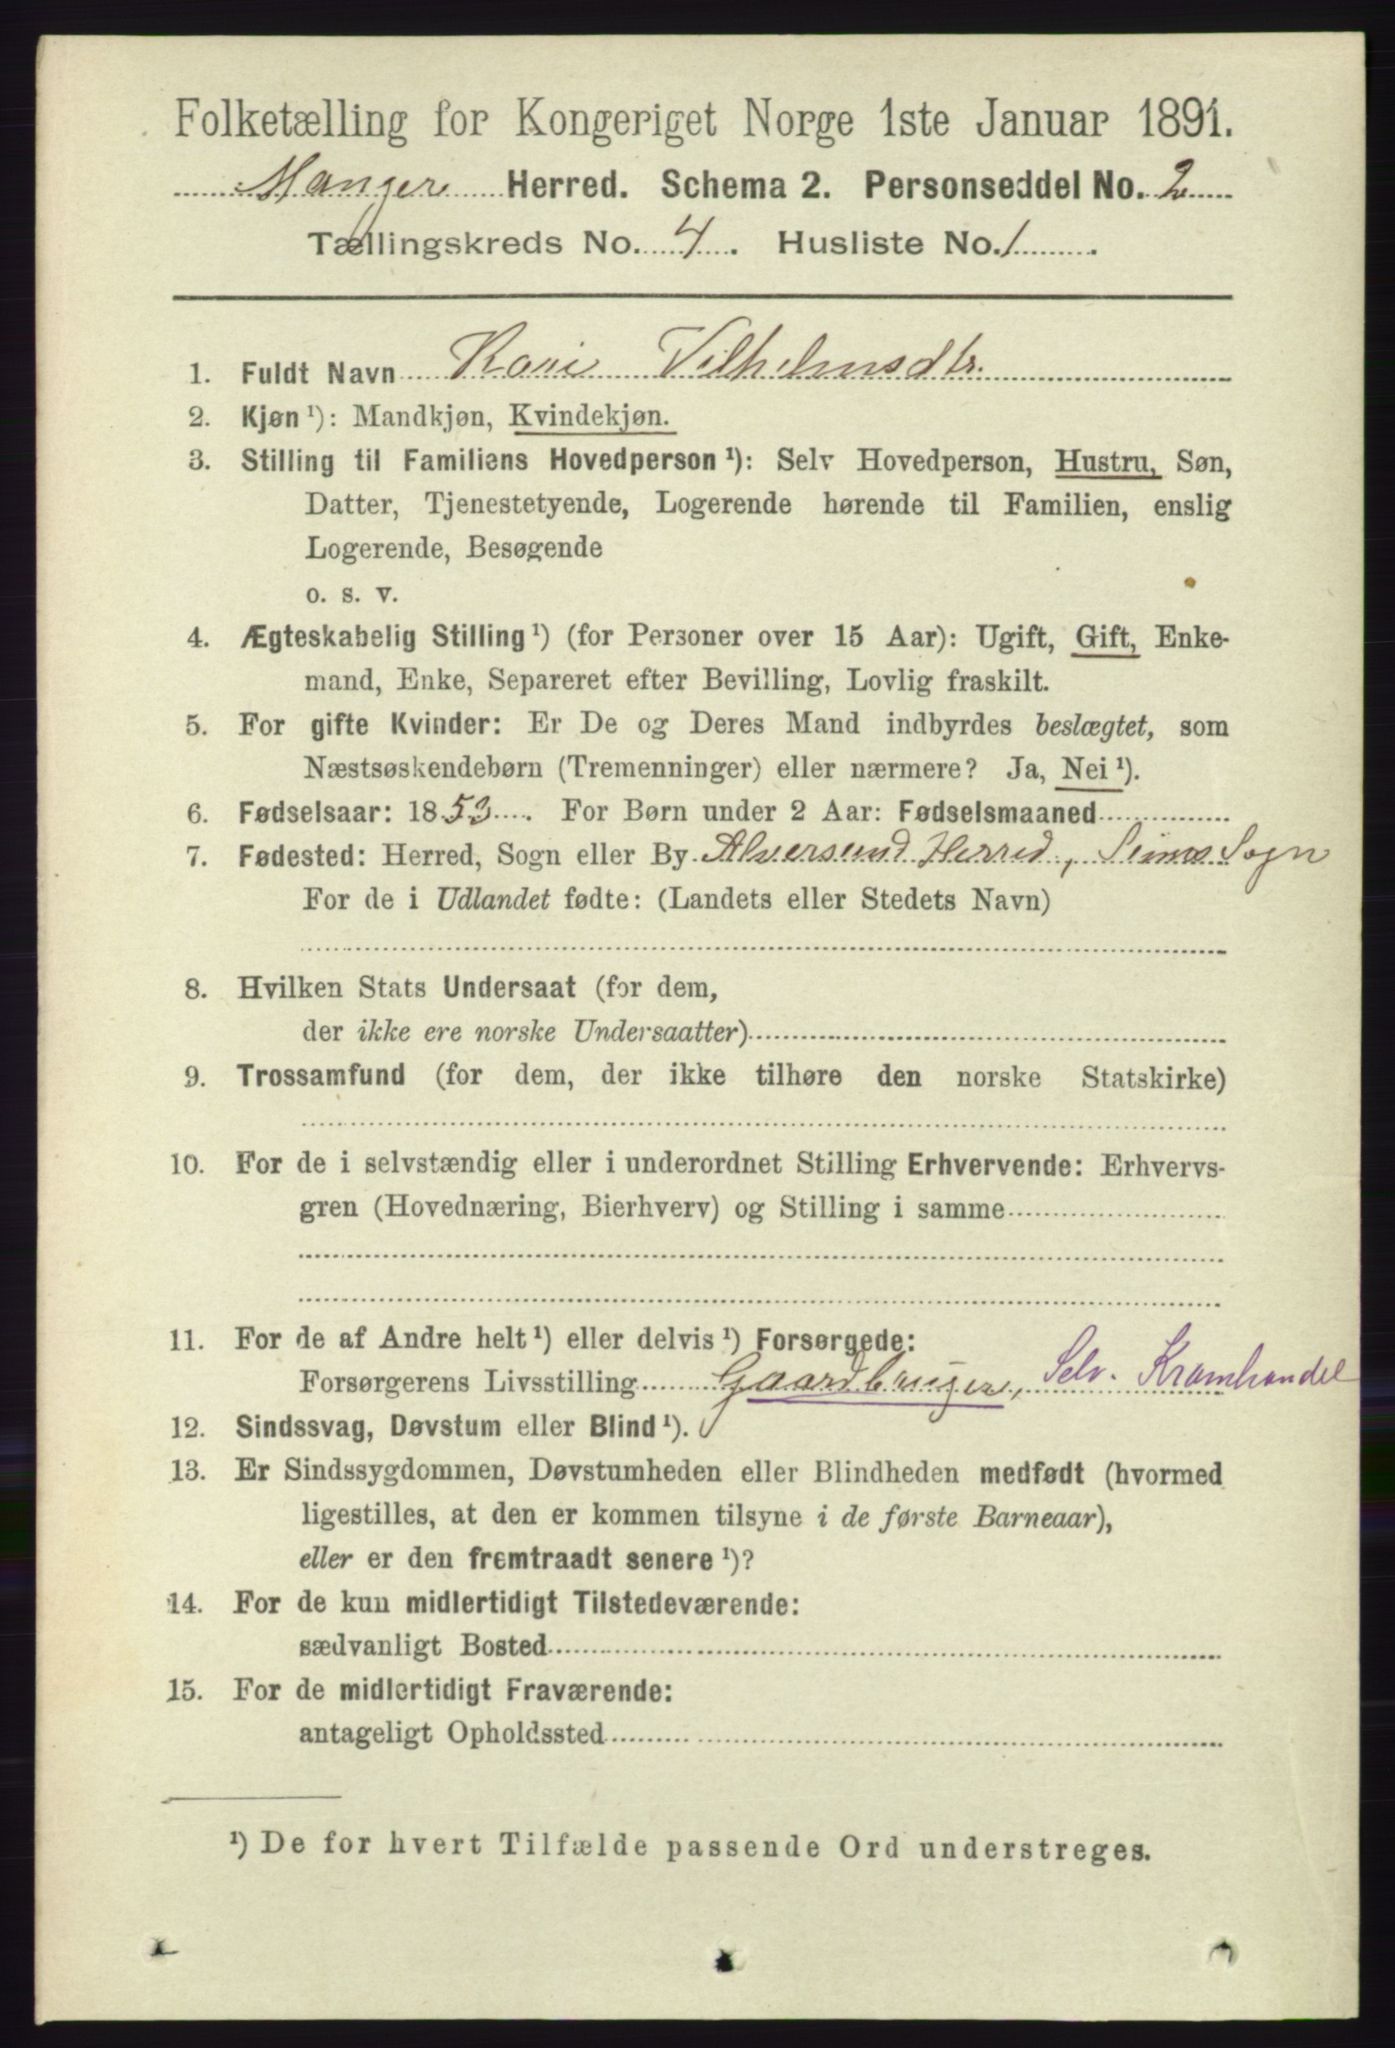 Folketælling for Kongeriget Norge 1ste Januar 1891.
Manger Herred. Schema 2. Personseddel No. 2
Tællingskreds No. 4. Husliste No. 1.
1. Fuldt Navn Kari Vilhelmsdtr.
2. Kjøn ¹): Mandkjøn, Kvindekjøn.
3. Stilling til Familiens Hovedperson ¹): Selv Hovedperson, Hustru, Søn,
Datter, Tjenestetyende, Logerende hørende til Familien, enslig
Logerende, Besøgende
o. s. v.
4. Ægteskabelig Stilling ¹) (for Personer over 15 Aar): Ugift, Gift, Enke-
mand, Enke, Separeret efter Bevilling, Lovlig fraskilt.
5. For gifte Kvinder: Er De og Deres Mand indbyrdes beslægtet, som
Næstsøskendebørn (Tremenninger) eller nærmere? Ja, Nei ¹).
6. Fødselsaar: 1853. For Børn under 2 Aar: Fødselsmaaned
7. Fødested: Herred, Sogn eller By Alversund Herred, Seims Sogn
For de i Udlandet fødte: (Landets eller Stedets Navn)
8. Hvilken Stats Undersaat (for dem,
der ikke ere norske Undersaatter)
9. Trossamfund (for dem, der ikke tilhøre den norske Statskirke)
10. For de i selvstændig eller i underordnet Stilling Erhvervende: Erhvervs-
gren (Hovednæring, Bierhverv) og Stilling i samme
11. For de af Andre helt ¹) eller delvis ¹) Forsørgede:
Forsørgerens Livsstilling Gaardbruger, Selv. Kramhandel
12. Sindssvag, Døvstum eller Blind ¹).
13. Er Sindssygdommen, Døvstumheden eller Blindheden medfødt (hvormed
ligestilles, at den er kommen tilsyne i de første Barneaar),
eller er den fremtraadt senere ¹)?
14. For de kun midlertidigt Tilstedeværende:
sædvanligt Bosted
15. For de midlertidigt Fraværende:
antageligt Opholdssted
¹) De for hvert Tilfælde passende Ord understreges.